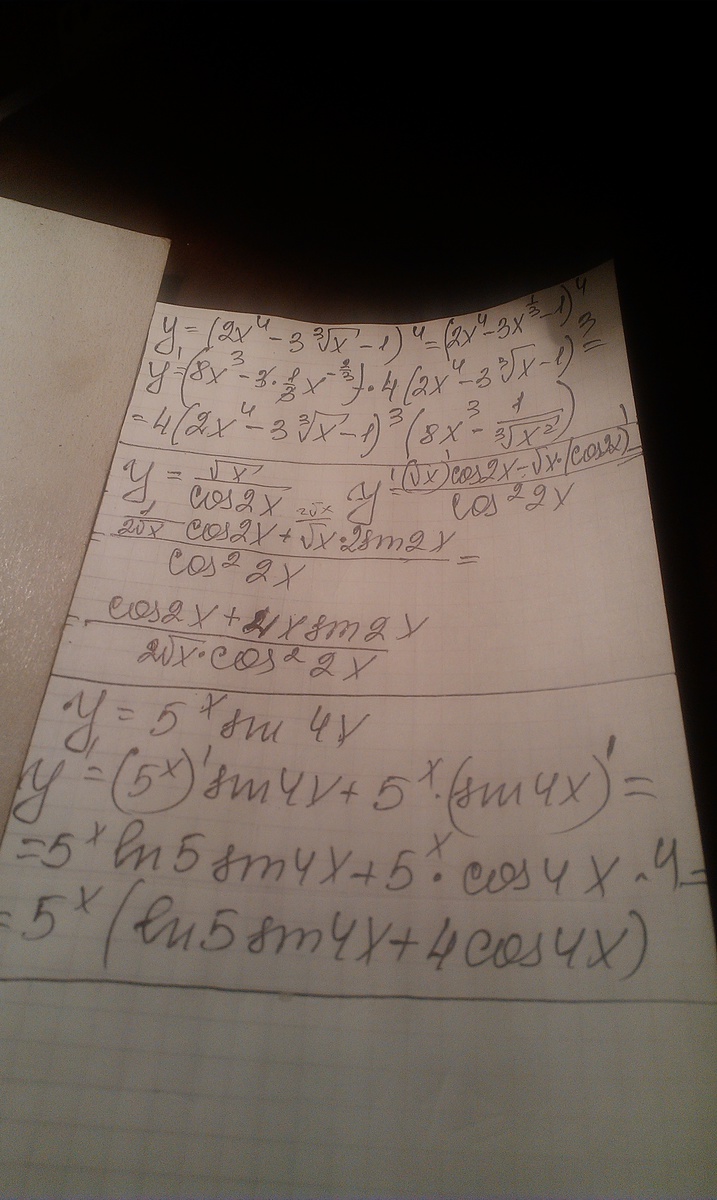 y = (2x⁴ - 3∛x - 1)⁴ = (2x⁴ - 3x^(1/3) - 1)⁴
y' = (8x³ - 3·1/3 x^(-2/3))·4(2x⁴ - 3∛x - 1)³ =
= 4(2x⁴ - 3∛x - 1)³ (8x³ - 1/∛x²)
y = √x / cos2x y' = ((√x)'cos2x - √x·(cos2x)') / cos²2x
= (1/(2√x) cos2x + √x·2sin2x) / cos²2x =
2√x
= (cos2x + 4x sin2x) / (2√x·cos²2x)
y = 5^x sin 4x
y' = (5^x)' sin4x + 5^x·(sin4x)' =
= 5^x ln5 sin4x + 5^x·cos4x·4 =
= 5^x (ln5 sin4x + 4cos4x)